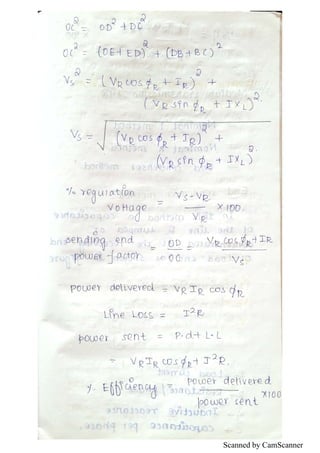 OC² = OD² + DC²
OC² = (OE + ED)² + (DB + BC)²
Vs² = (VR cos φR + IR)² +
(VR sin φR + IXL)²
Vs = √(VR cos φR + IR)² +
(VR sin φR + IXL)²
% regulation = Vs - VR
Voltage VR × 100.
Sending end = OD = VR cos φR + IR
power-factor OC Vs
power delivered = VR IR cos φR
Line Loss = I²R
power sent = P.d + L.L
= VR IR cos φR + I²R.
% Efficiency = power delivered
power sent ×100
Scanned by CamScanner